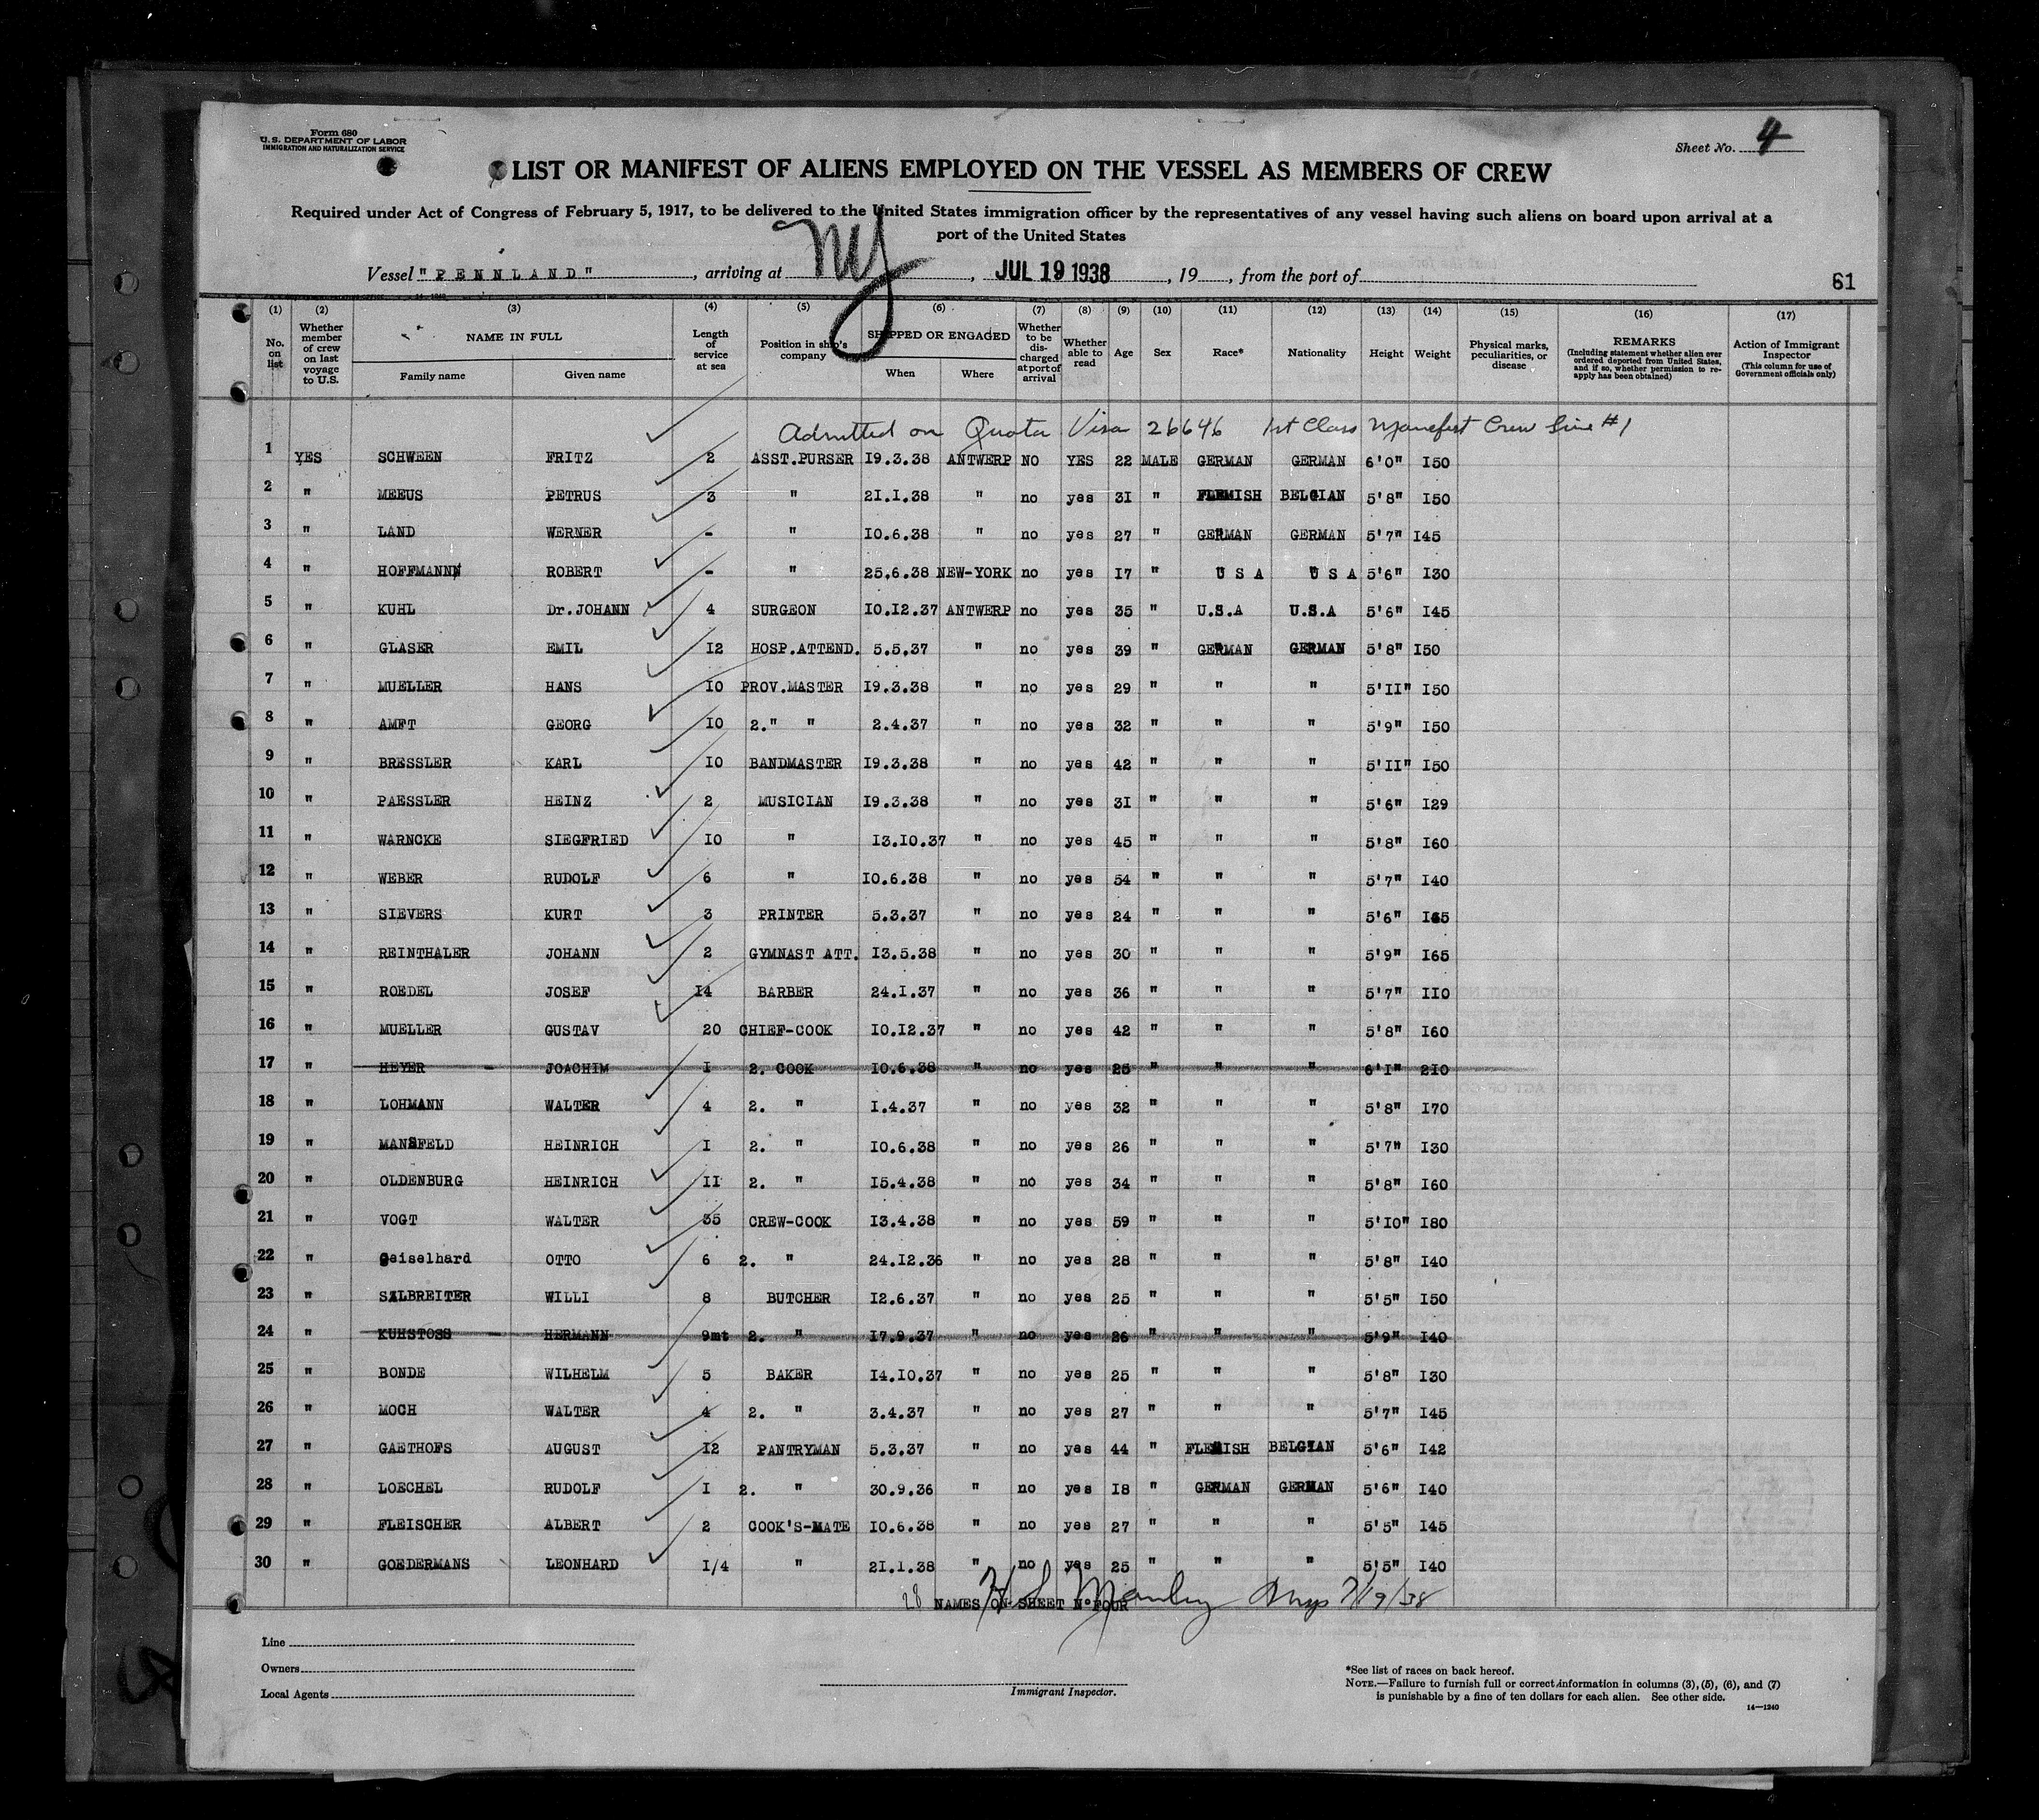 Form 680
U. S. DEPARTMENT OF LABOR
IMMIGRATION AND NATURALIZATION SERVICE
Sheet No. 4
LIST OR MANIFEST OF ALIENS EMPLOYED ON THE VESSEL AS MEMBERS OF CREW
Required under Act of Congress of February 5, 1917, to be delivered to the United States immigration officer by the representatives of any vessel having such aliens on board upon arrival at a
port of the United States
Vessel "PENNLAND", arriving at NY, JUL 19 1938, 19, from the port of
61
(1) (2) (3) (4) (5) (6) (7) (8) (9) (10) (11) (12) (13) (14) (15) (16) (17)
No. on list Whether member of crew on last voyage to U.S. NAME IN FULL Family name Given name Length of service at sea Position in ship's company SHIPPED OR ENGAGED When Where Whether to be discharged at port of arrival Whether able to read Age Sex Race* Nationality Height Weight Physical marks, peculiarities, or disease REMARKS (Including statement whether alien ever ordered deported from United States, and if so, whether permission to re-apply has been obtained) Action of Immigrant Inspector (This column for use of Government officials only)
Admitted on Quota Visa 26646 1st Class Manefest Crew Line #1
1 YES SCHWEEN FRITZ 2 ASST.PURSER I9.3.38 ANTWERP NO YES 22 MALE GERMAN GERMAN 6'0" I50
2 " MEEUS PETRUS 3 " 2I.I.38 " no yes 3I " FLEMISH BELGIAN 5'8" I50
3 " LAND WERNER - " I0.6.38 " no yes 27 " GERMAN GERMAN 5'7" I45
4 " HOFFMANN ROBERT - " 25.6.38 NEW-YORK no yes I7 " U S A U S A 5'6" I30
5 " KUHL Dr.JOHANN 4 SURGEON I0.I2.37 ANTWERP no yes 35 " U.S.A U.S.A 5'6" I45
6 " GLASER EMIL I2 HOSP.ATTEND. 5.5.37 " no yes 39 " GERMAN GERMAN 5'8" I50
7 " MUELLER HANS I0 PROV.MASTER I9.3.38 " no yes 29 " " " 5'II" I50
8 " AMFT GEORG I0 2." " 2.4.37 " no yes 32 " " " 5'9" I50
9 " BRESSLER KARL I0 BANDMASTER I9.3.38 " no yes 42 " " " 5'II" I50
10 " PAESSLER HEINZ 2 MUSICIAN I9.3.38 " no yes 3I " " " 5'6" I29
11 " WARNCKE SIEGFRIED I0 " I3.I0.37 " no yes 45 " " " 5'8" I60
12 " WEBER RUDOLF 6 " I0.6.38 " no yes 54 " " " 5'7" I40
13 " SIEVERS KURT 3 PRINTER 5.3.37 " no yes 24 " " " 5'6"
14 " REINTHALER JOHANN 2 GYMNAST ATT. I3.5.38 " no yes 30 " " " 5'9" I65
15 " ROEDEL JOSEF I4 BARBER 24.I.37 " no yes 36 " " " 5'7" II0
16 " MUELLER GUSTAV 20 CHIEF-COOK I0.I2.37 " no yes 42 " " " 5'8" I60
17 " HEYER - JOACHIM I 2. COOK I0.6.38 " no yes 25 " " " 6'I" 2I0
18 " LOHMANN WALTER 4 2. " I.4.37 " no yes 32 " " " 5'8" I70
19 " MANSFELD HEINRICH I 2. " I0.6.38 " no yes 26 " " " 5'7" I30
20 " OLDENBURG HEINRICH II 2. " I5.4.38 " no yes 34 " " " 5'8" I60
21 " VOGT WALTER 35 CREW-COOK I3.4.38 " no yes 59 " " " 5'I0" I80
22 " Geiselhard OTTO 6 2. " 24.I2.36 " no yes 28 " " " 5'8" I40
23 " SALBREITER WILLI 8 BUTCHER I2.6.37 " no yes 25 " " " 5'5" I50
24 " KUHSTOSS - HERMANN 9mt 2. " I7.9.37 " no yes 26 " " " 5'9" I40
25 " BONDE WILHELM 5 BAKER I4.I0.37 " no yes 25 " " " 5'8" I30
26 " MOCH WALTER 4 2. " 3.4.37 " no yes 27 " " " 5'7" I45
27 " GAETHOFS AUGUST I2 PANTRYMAN 5.3.37 " no yes 44 " FLEMISH BELGIAN 5'6" I42
28 " LOECHEL RUDOLF I 2. " 30.9.36 " no yes I8 " GERMAN GERMAN 5'6" I40
29 " FLEISCHER ALBERT 2 COOK'S-MATE I0.6.38 " no yes 27 " " " 5'5" I45
30 " GOEDERMANS LEONHARD I/4 " 2I.I.38 " no yes 25 " " " 5'5" I40
28 NAMES ON SHEET N° FOUR H S Manley Insp 7/19/38
Line
Owners
Local Agents
Immigrant Inspector.
*See list of races on back hereof.
NOTE.—Failure to furnish full or correct information in columns (3), (5), (6), and (7)
is punishable by a fine of ten dollars for each alien. See other side.
14—1240